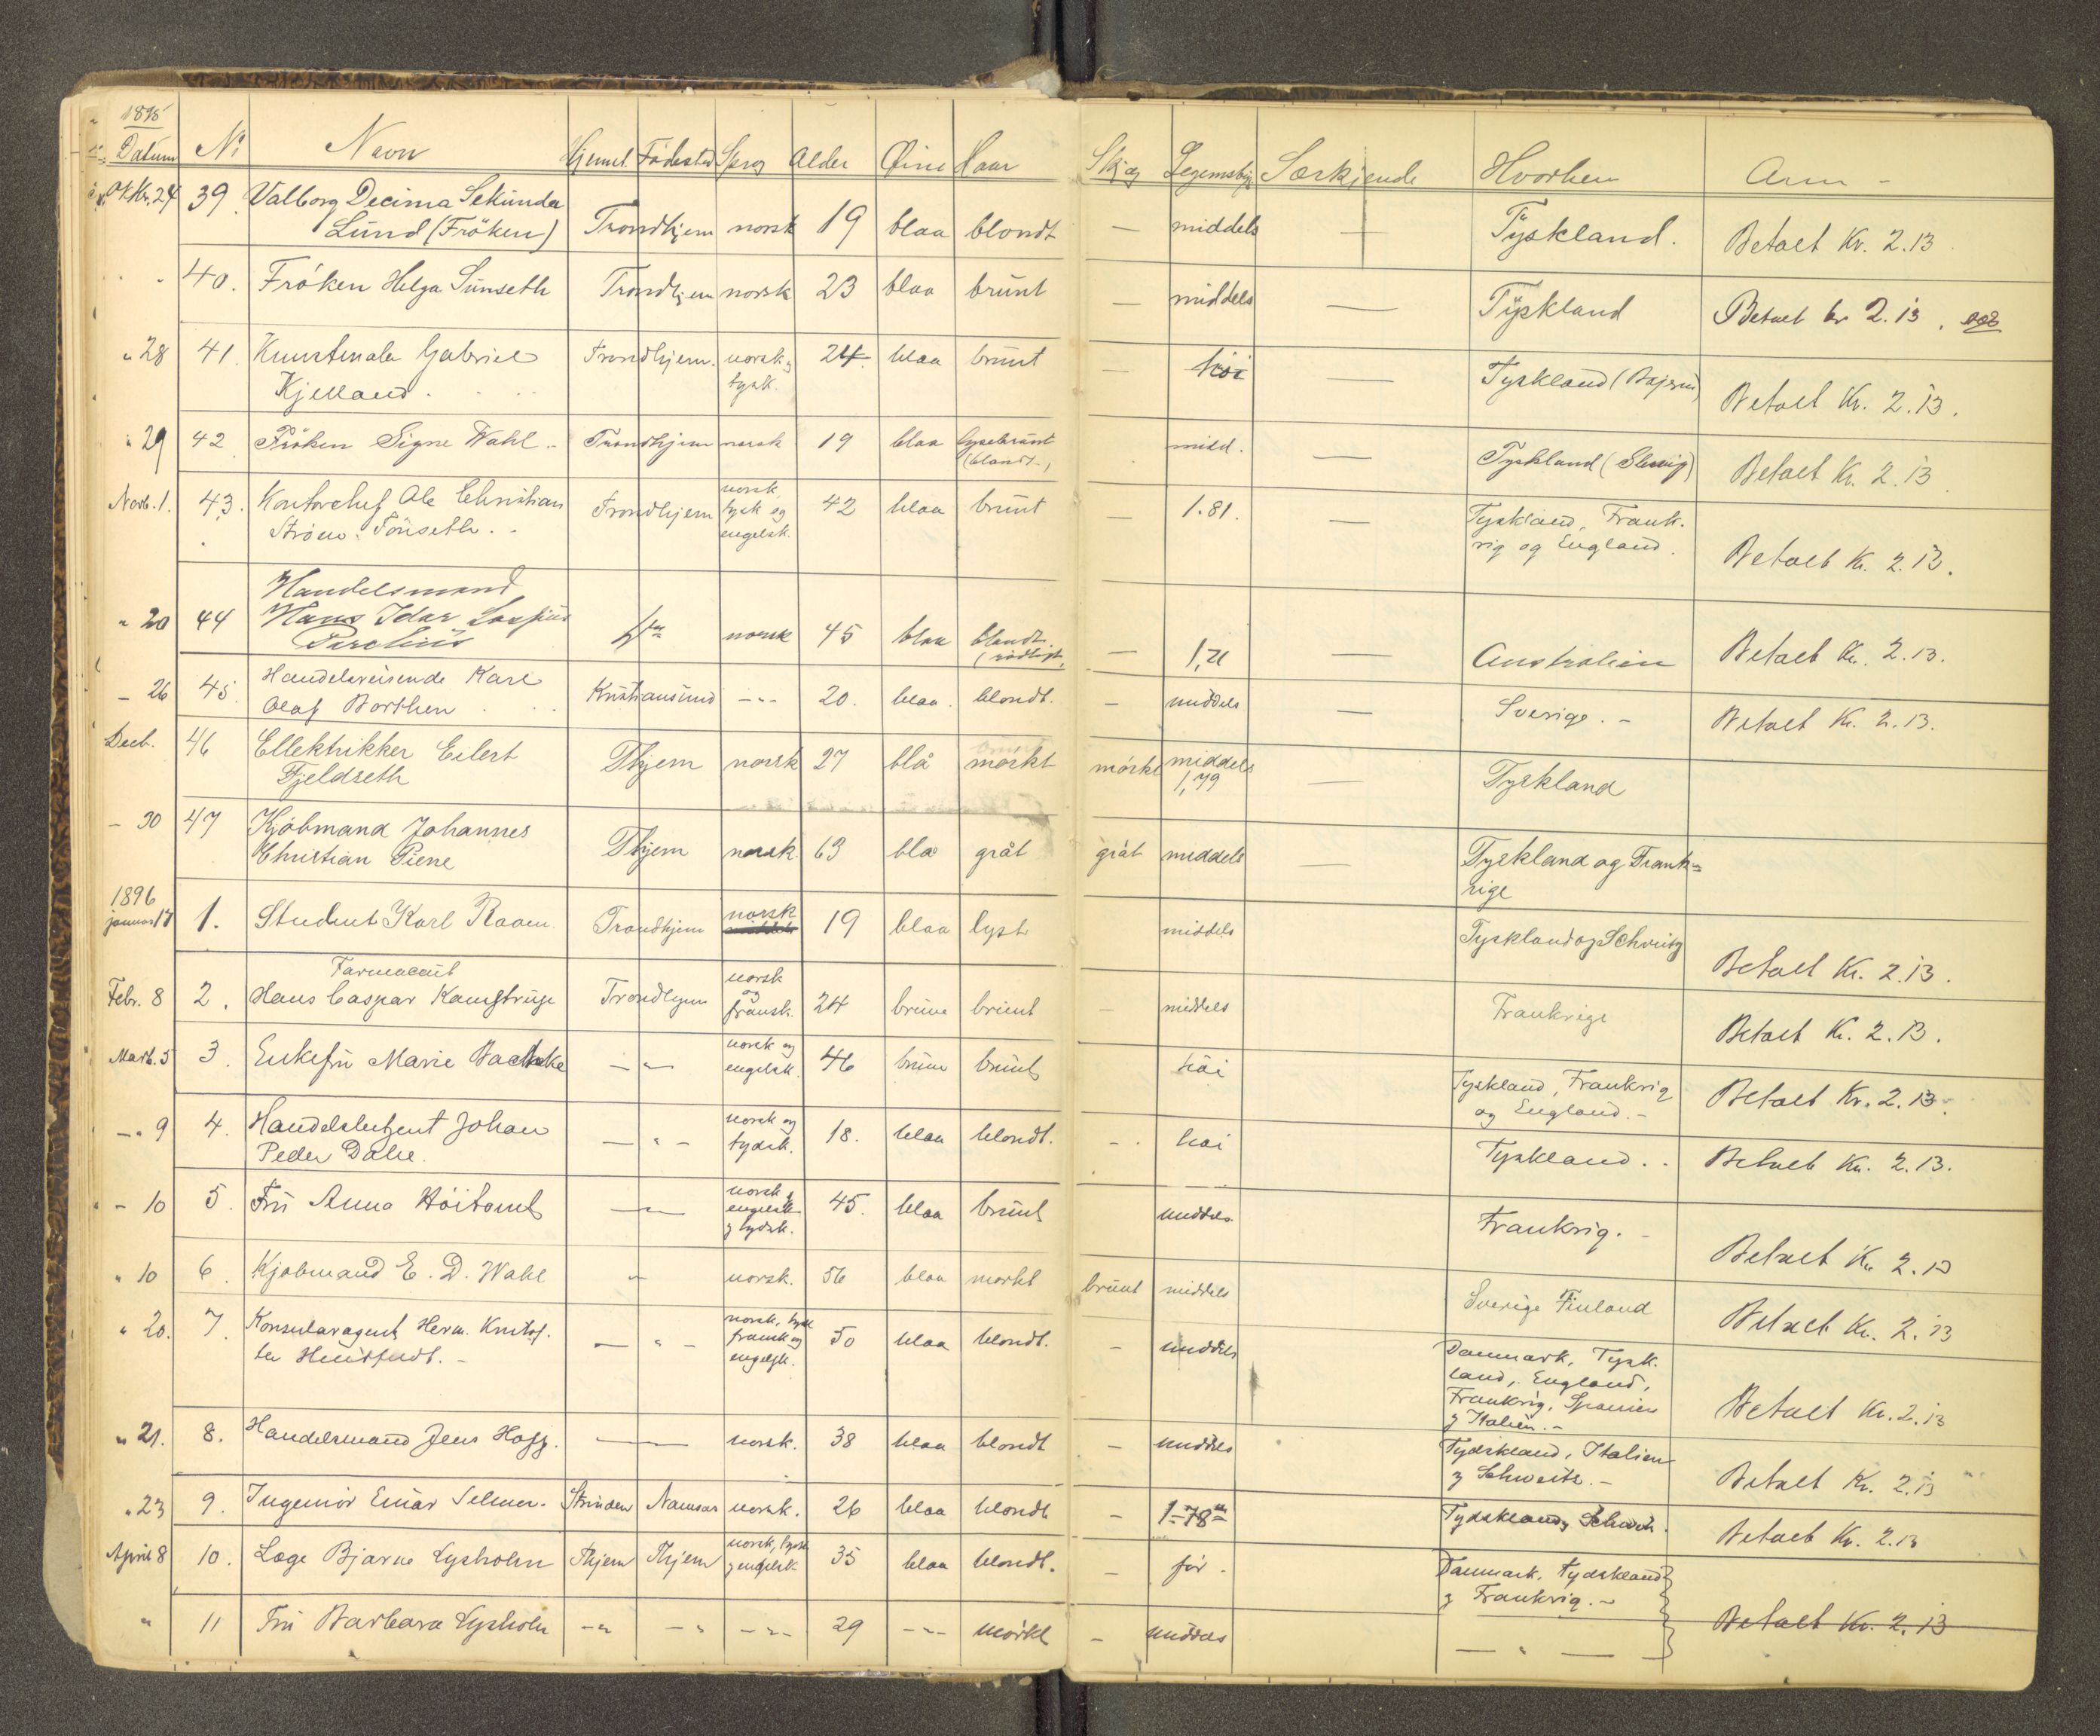 1895
Datum No Navn Hjemst. Fødested Sprog Alder Øine Haar Skjæg Legemsbyg Særkjende Hvorhen Anm -
Oktbr. 24 39. Valborg Decima Sekunda
Lund (Fröken) Trondhjem norsk 19 blaa blondt — middels — Tyskland. Betalt Kr. 2.13.
" " 40. Fröken Helga Sunseth Trondhjem norsk 23 blaa brunt — middels — Tyskland Betalt kr 2.13.
" 28 41. Kunstmaler Gabriel Trondhjem. norsk og 24. blaa brunt — höi — Tyskland (Bajern)
Kjelland. tysk. Betalt Kr. 2.13.
" 29 42. Fröken Signe Wahl Trondhjem norsk 19 blaa lysebrunt midd. — Tyskland (Slesvig) Betalt Kr. 2.13.
(blondt)
Novb. 1. 43. Kontorchef Ole Christian Trondhjem norsk, 42 blaa brunt — 1.81. — Tyskland, Frank-
Ström Tönseth. tysk og rig og England. Betalt Kr. 2.13.
engelsk.
Handelsmand
" 20 44 Hans Idar norsk 45 blaa blondt — 1,71 — Australien Betalt Kr. 2.13.
(rödligt)
— 26 45. Handelsreisende Karl Kristiansund -"- 20. blaa. blondt. — middels — Sverige. - Betalt Kr. 2.13.
Olaf Borthen
Decb. 46 Ellektrikker Eilert Thjem norsk 27 blå mørkt mørkt middels — Tyskland
Fjeldseth 1,79
— 30 47 Kjöbmand Johannes Thjem norsk. 63 blå gråt gråt middels — Tyskland og Frank-
Christian Piene rige
1896
januar 17 1. Student Karl Raaen. Trondhjem norsk 19 blaa lyst middels Tyskland og Schveitz Betalt Kr. 2.13.
Farmaceut
Febr. 8 2. Hans Caspar Kamstrup Trondhjem norsk og fransk. 24 brune brunt — middels Frankrige Betalt Kr. 2.13.
Marts. 5 3. Enkefru Marie Bachke —"— norsk og 46 brune brunt höi Tyskland, Frankrig Betalt Kr. 2.13.
engelsk. og England. -
—" 9 4. Handelsbetjent Johan — " - norsk og 18. blaa blondt. - . höi Tyskland. . Betalt Kr. 2.13.
Peder Dahl. tydsk.
" - 10 5. Fru Anna Höitomt —"— norsk, 45. blaa brunt middels. Frankrig. - Betalt Kr. 2.13
engelsk
og tydsk.
" 10 6. Kjøbmand E. D. Wahl " norsk. 56 blaa mørkt brunt middels Sverige Finland Betalt Kr. 2.13
" 20. 7. Konsularagent Herm. Kristof- — " - norsk, tysk 50 blaa blondt. - middels Danmark, Tysk-
fer fransk og land, England,
engelsk. Frankrig, Spanien Betalt Kr. 2.13
og Italien. -
" 21. 8. Handelsmand Jens Hoff. —"— norsk. 38 blaa blondt - middels Tydskland, Italien
og Schweitz. - Betalt Kr. 2.13
" 23 9. Ingeniör Einar Selmer. Strinden Namsos norsk. 26 blaa blondt - 1.78 m Tydskland og Schweitz. Betalt Kr. 2.13
April 8 10. Læge Bjarne Lysholm Thjem Thjem norsk, tysk 35 blaa blondt. - før. Danmark, Tydskland
og engelsk. og Frankrig. -
" 11 Fru Barbara Lysholm -"- -"- -"- 29 -"- mörkt - middels — " — Betalt Kr. 2.13